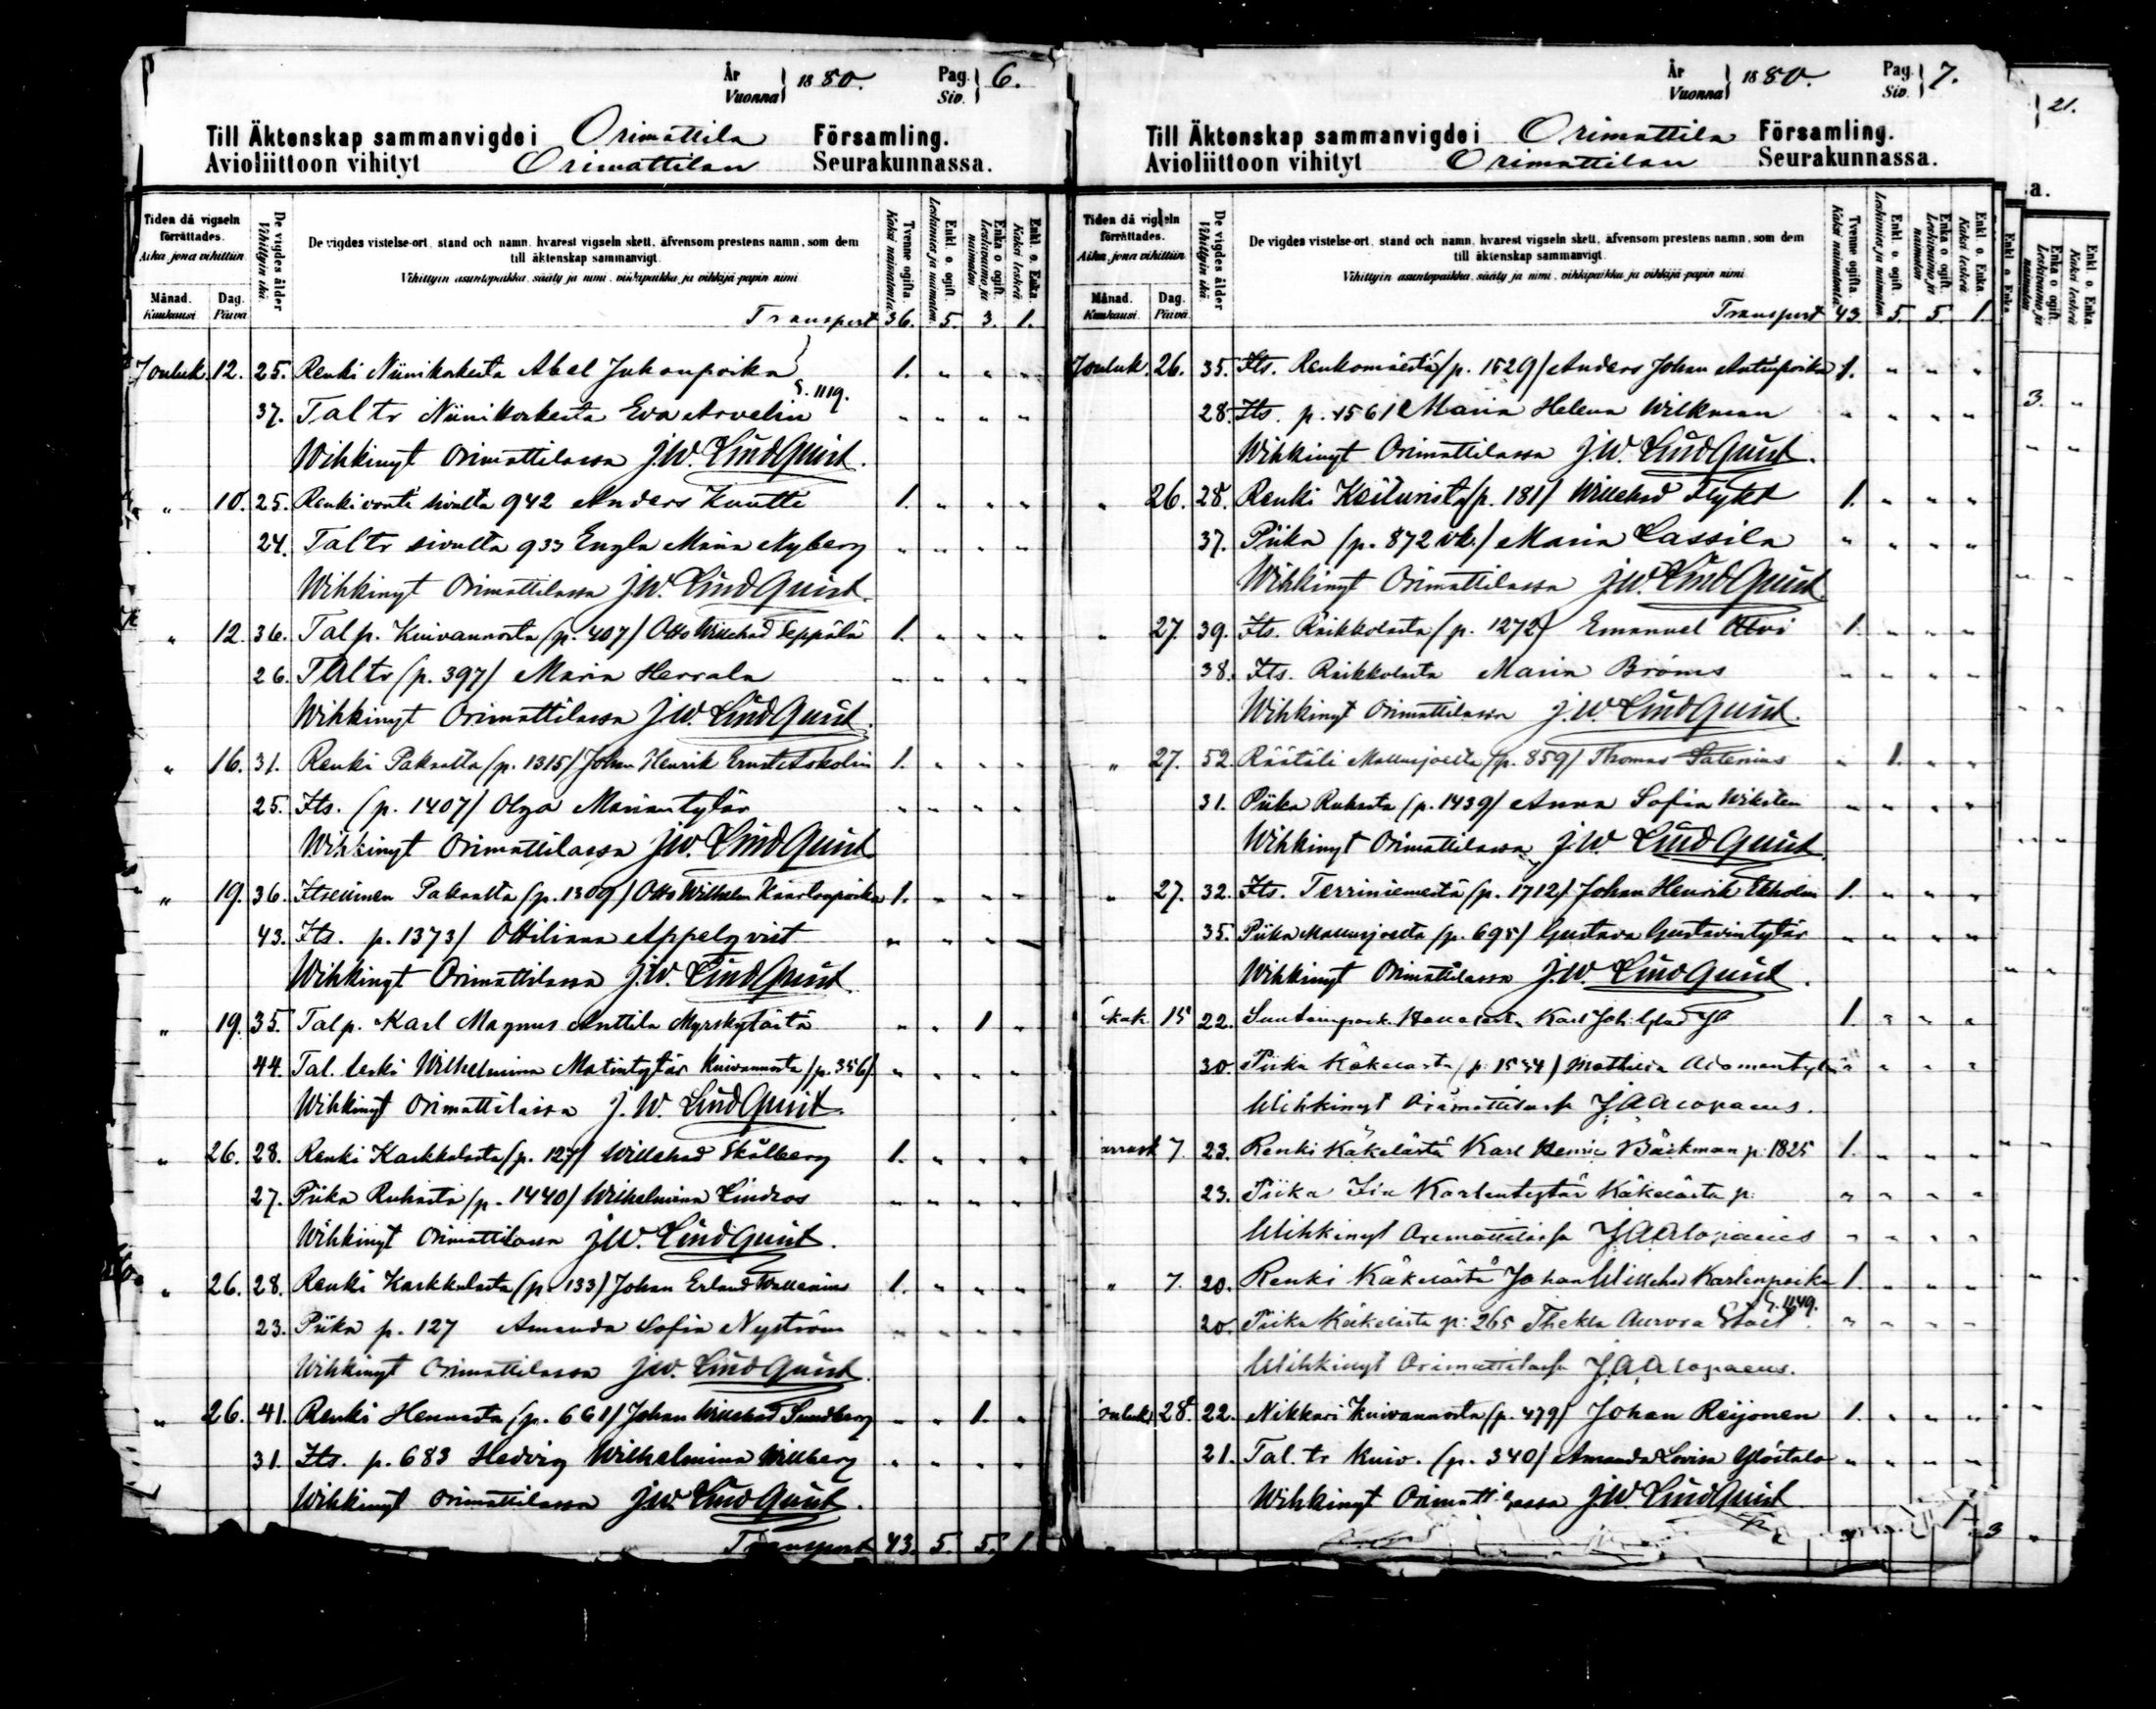 År
Vuonna } 1880. Pag.
Siv. } 6.
Till Äktenskap sammanvigde i Orimattila Församling.
Avioliittoon vihityt Orimattilan Seurakunnassa.
Tiden då vigseln förrättades.
Aika, jona vihittiin.
Månad. Kuukausi. Dag. Päivä.
De vigdes ålder
Vihittyin ikä.
De vigdes vistelse-ort, stand och namn, hvarest vigseln skett, äfvensom prestens namn, som dem
till äktenskap sammanvigt.
Vihittyin asuntopaikka, sääty ja nimi, vihkipaikka ja vihkijä-papin nimi.
Tvenne ogifta. Kaksi naimatonta.
Enkl. o. ogift. Leskimies ja naimaton.
Enka o ogift. Leskivaimo ja naimaton.
Enkl. o. Enka. Kaksi leskeä
Transport 36. 5. 3. 1.
Jouluk. 12. 25. Renki Niinikoskesta Abel Juhonpoika 1. " " "
S. 1119.
37. Taltr Niinikoskesta Eva Arvelin " " " "
Wihkinyt Orimattilassa J.W. LindQuist.
" 10. 25. Renkivouti sivulta 942 Anders Kuutti 1. " " "
24. Taltr sivulta 933 Engla Maria Nyberg " " " "
Wihkinyt Orimattilassa J.W. LindQuist.
" 12. 36. Talp. Kuivannosta (p. 407) Otto Willehad Seppälä 1. " " "
26. Taltr (p. 397) Maria Herrala " " " "
Wihkinyt Orimattilassa J.W. LindQuist.
" 16. 31. Renki Pakaalta (p. 1315) Johan Henrik Ernst Askolin 1. " " "
25. Its. (p. 1407) Olga Mariantytär " " " "
Wihkinyt Orimattilassa J.W. LindQuist.
" 19. 36. Itsellinen Pakaalta (p. 1309) Otto Wilhelm Kaarlonpoika 1. " " "
43. Its. p. 1373) Ottiliana Appelqvist " " " "
Wihkinyt Orimattilassa J.W. LindQuist.
" 19. 35. Talp. Karl Magnus Anttila Myrskylästä " " 1 "
44. Tal. leski Wilhelmina Matintytär Kuivannosta (p. 356) " " " "
Wihkinyt Orimattilassa J.W. LindQuist.
" 26. 28. Renki Karkkulasta (p. 127) Willehad Skålberg 1. " " "
27. Piika Ruhasta (p. 1440) Wilhelmina Lindros " " " "
Wihkinyt Orimattilassa J.W. LindQuist.
" 26. 28. Renki Karkkulasta (p. 133) Johan Erland Wallenius 1. " " "
23. Piika p. 127 Amanda Sofia Nyström " " " "
Wihkinyt Orimattilassa J.W. LindQuist.
" 26. 41. Renki Hennasta (p. 661) Johan Willehad Sundberg " " 1. "
31. Its. p. 683 Hedvig Wilhelmina Willberg " " " "
Wihkinyt Orimattilassa J.W. LindQuist.
Transport 43. 5. 5. 1.
År
Vuonna } 1880. Pag.
Siv. } 7.
Till Äktenskap sammanvigde i Orimattila Församling.
Avioliittoon vihityt Orimattilan Seurakunnassa.
Tiden då vigseln förrättades.
Aika, jona vihittiin.
Månad. Kuukausi. Dag. Päivä.
De vigdes ålder
Vihittyin ikä.
De vigdes vistelse-ort, stand och namn, hvarest vigseln skett, äfvensom prestens namn, som dem
till äktenskap sammanvigt.
Vihittyin asuntopaikka, sääty ja nimi, vihkipaikka ja vihkijä-papin nimi.
Tvenne ogifta. Kaksi naimatonta.
Enkl. o. ogift. Leskimies ja naimaton.
Enka o ogift. Leskivaimo ja naimaton.
Enkl. o. Enka. Kaksi leskeä
Transport 43 5. 5. 1.
Jouluk. 26. 35. Its. Renkomäestä (p. 1529) Anders Johan Antinpoika 1. " " "
28. Its. p. 1561 Maria Helena Wilkman " " " "
Wihkinyt Orimattilassa J.W. LindQuist.
" 26. 28. Renki Keiturista (p. 181) Willehad Flykt 1. " " "
37. Piika (p. 872 vk.) Maria Lassila " " " "
Wihkinyt Orimattilassa J.W. LindQuist.
" 27. 39. Its. Räikkolasta (p. 1272) Emanuel 1. " " "
38. Its. Räikkolasta Maria Broms " " " "
Wihkinyt Orimattilassa J.W. LindQuist.
" 27. 52. Räätäli Mallusjoelta (p. 859) Thomas Satenius " 1. " "
31. Piika Ruhasta (p. 1439) Anna Sofia Wiksten " " " "
Wihkinyt Orimattilassa J.W. LindQuist.
" 27. 32. Its. Terriniemestä (p. 1712) Johan Henrik Ekholm 1. " " "
35. Piika Mallusjoelta (p. 695) Gustava Gustavintytär " " " "
Wihkinyt Orimattilassa J.W. LindQuist.
15 22. Karl Joh. 1. " " "
30. Piika Käkelästä (p. 1544) Mathilda Adamentytär " " "
Wihkinyt Orimattilassa J A Alopaeus.
7 23. Renki Käkelästä Karl Henric Bäckman p. 1825 1. " " "
23. Piika Karlentytär Käkelästä p. " " " "
Wihkinyt Orimattilassa J A Alopaeus " " " "
" 7. 20. Renki Käkelästä Johan Willehad Karlenpoika 1. " " "
S. 1149.
20. Piika Käkelästä p: 265 Thekla Aurora " " " "
Wihkinyt Orimattilassa J A Alopaeus.
ouluk. 28. 22. Nikkari Kuivannosta (p. 479) Johan Reijonen 1. " " "
21. Tal. tr Kuiv. (p. 340) Amanda Lovisa Ylöstalo " " " "
Wihkinyt Orimattilassa J.W. LindQuist
21.
a.
Enkl. o. Enka.
Enka o ogift. Leskivaimo ja naimaton.
Enkl. o. Enka. Kaksi leskeä.
3. "
3 "